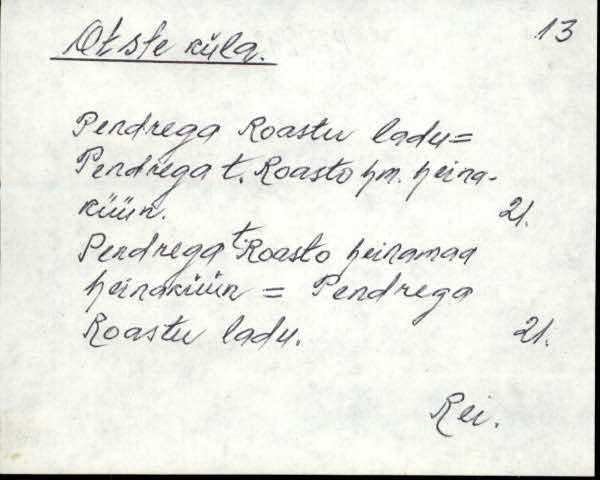 Otste küla. 13
Pendrega Roastu ladu=
Pendrega t. Roasto hm. heina-
küün. 21.
Pendrega t. Roasto heinamaa
heinaküün = Pendrega
Roastu ladu. 21.
Rei.